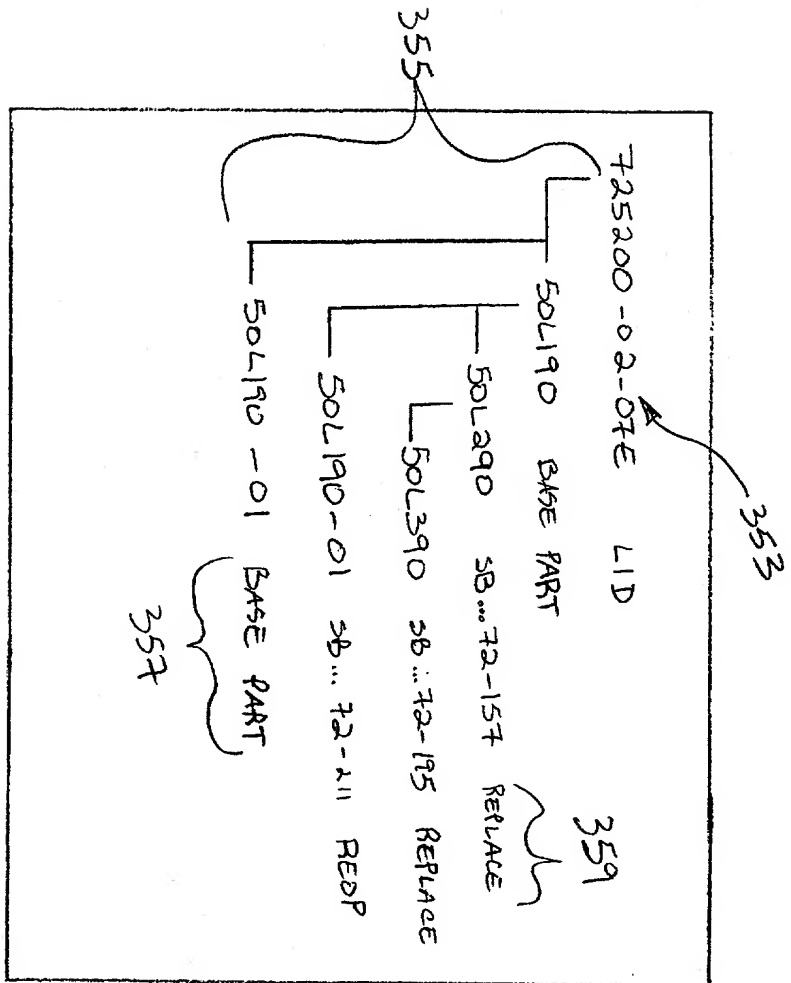 353
355
725200-02-07E LID
50L190 BASE PART
50L290 SB...72-157 REPLACE
359
50L390 SB...72-195 REPLACE
50L190-01 SB...72-211 REOP
50L190-01 BASE PART
357